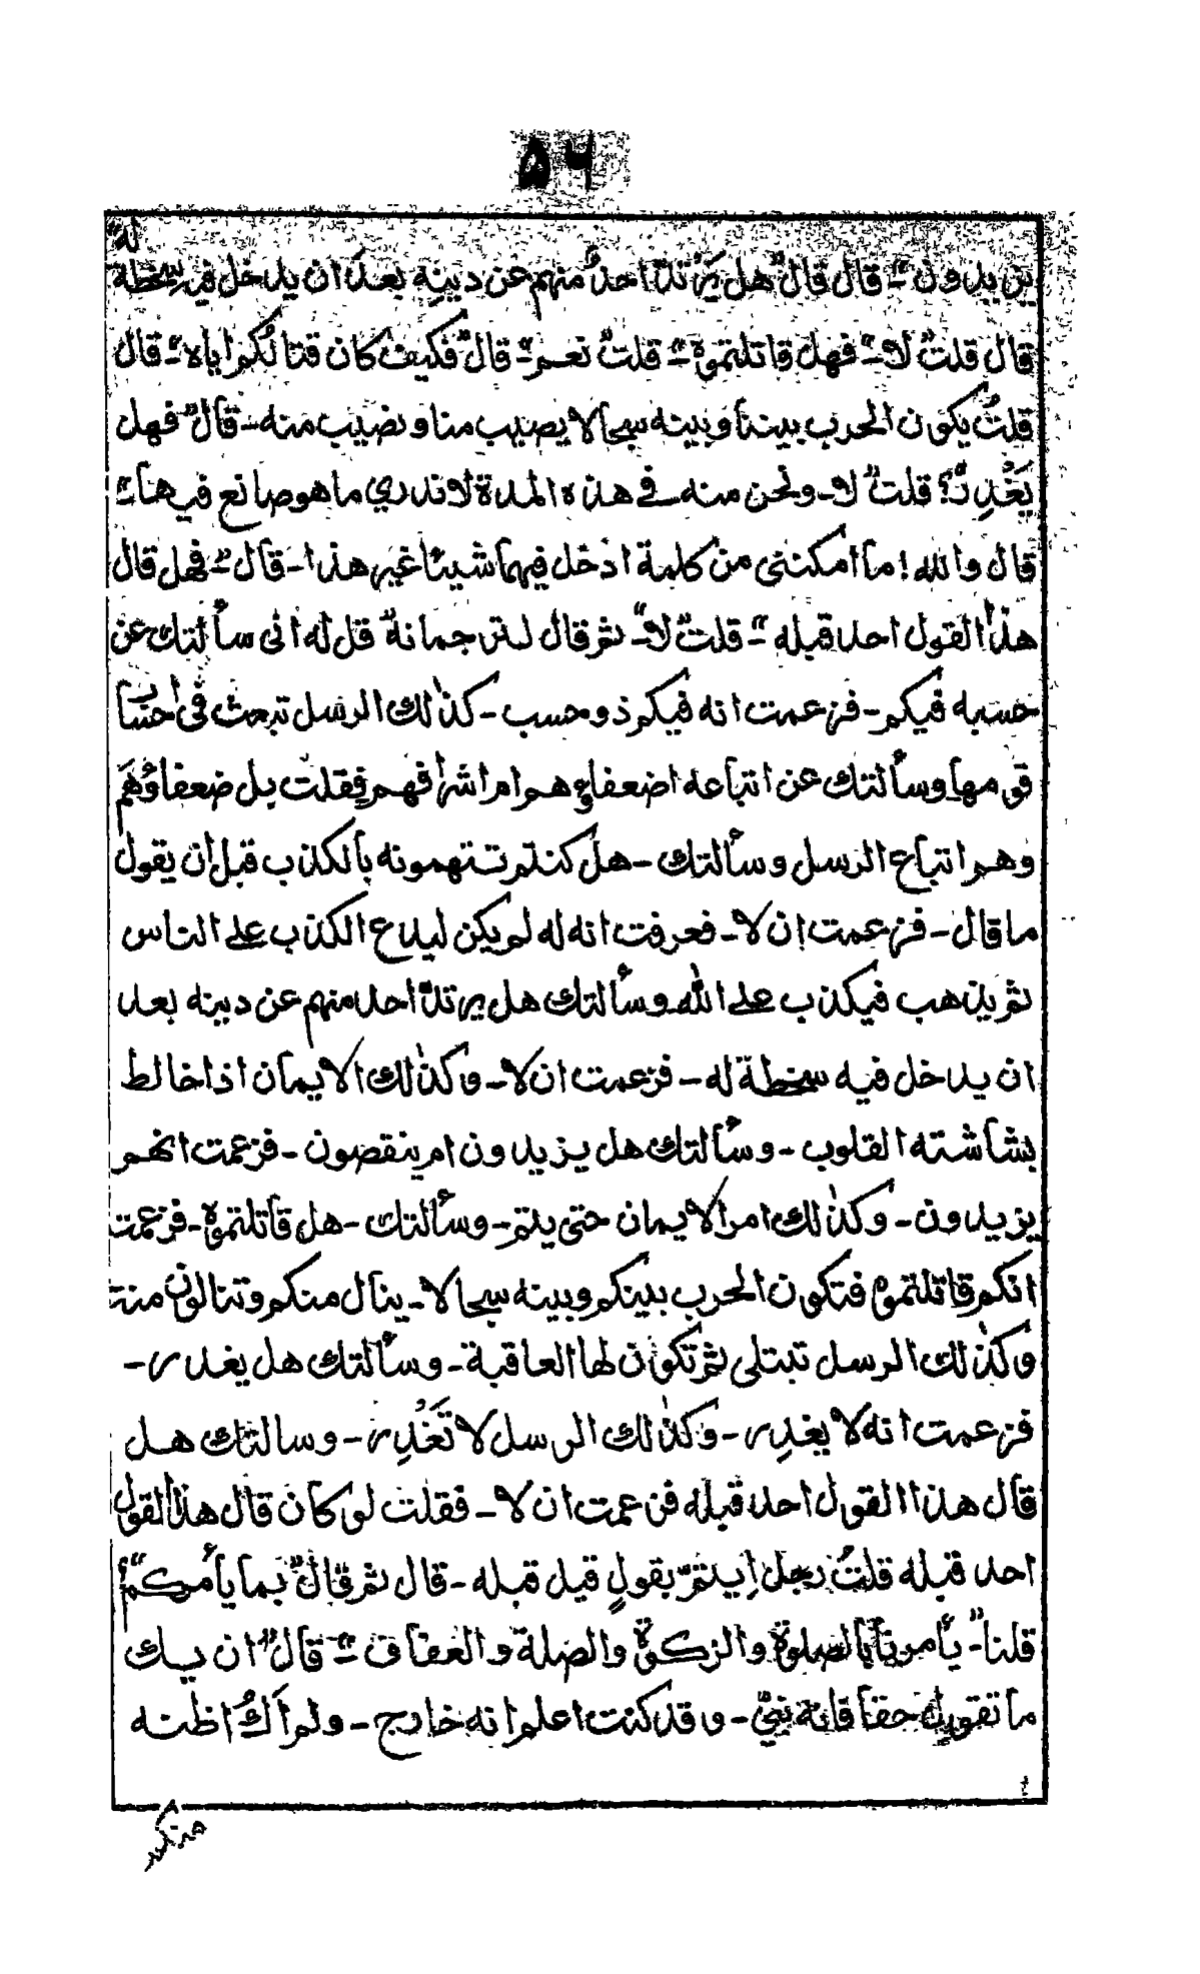 ۵۶
له"
يزيدون"۔ قال قال" هل يَرْتدّ احدٌ منهم عن دينه بعد ان يدخل فيه سخطة
قال قلتُ لا"۔ فهل قاتلتموه"۔ قلتُ" نعم"۔ قال" فكيف كان قتالُكم اياه"۔ قال
قلتُ يكون الحرب بيننا وبينه سجالا يصيب منا ونصيب منه۔ قال" فهل
يَغْدِرُ؟ قلت" لا۔ ونحن منه فى هذه المدة لا ندري ما هو صانع فيها"
قال والله! ما امكننى من كلمة ادخل فيها شيئا غير هذا۔ قال" فهل قال
هذا القول احد قبله"۔ قلتُ" لا"۔ ثم قال لترجمانه" قل له انى سألتك عن
حسبه فيكم۔ فزعمت انه فيكم ذو حسب۔ كذٰلك الرسل تبعث فى أحساب
قومها وسألتك عن اتباعه اضعفاءهم ام اشرافهم فقلت بل ضعفاؤهم
وهم اتباع الرسل وسألتك۔ هل كنتم تتهمونه بالكذب قبل أن يقول
ما قال۔ فزعمت إن لا۔ فعرفت انه له لم يكن ليدع الكذب على الناس
ثم يذهب فيكذب على الله وسألتك هل يرتدّ احد منهم عن دينه بعد
ان يدخل فيه سخطة له۔ فزعمت ان لا۔ وكذٰلك الايمان اذا خالط
بشاشته القلوب۔ وسألتك هل يزيدون ام ينقصون۔ فزعمت انهم
يزيدون۔ وكذٰلك امر الايمان حتى يتم۔ وسألتك۔ هل قاتلتموه۔ فزعمت
انكم قاتلتموه فتكون الحرب بينكم وبينه سجالا۔ ينال منكم وتنالون منه
وكذٰلك الرسل تبتلى ثم تكون لها العاقبة۔ وسألتك هل يغدر۔
فزعمت انه لا يغدِر۔ وكذٰلك الرسل لا تَغْدِر۔ وسالتك هل
قال هذا القول احد قبله فزعمت ان لا۔ فقلت لو كان قال هذا القول
احد قبله قلتُ رجل إيتمّ بقولٍ قيل قبله۔ قال ثم قال" بما يأمركم"؟
قلنا"۔ يأمرنا بالصلوة والزكوة والصلة والعفاف"۔ قال" ان يك
ما تقول حقا فانه نبيّ۔ وقد كنت اعلم انه خارج۔ ولم أكُ اظنه
منكم